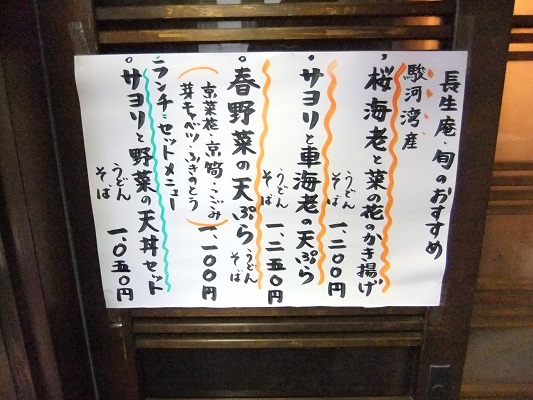 長生庵・旬のおすすめ
駿河湾産
・桜海老と菜の花のかき揚げ
うどん
そば 一、二〇〇円
・サヨリと車海老の天ぷら
うどん
そば 一、二五〇円
・春野菜の天ぷら うどん
そば
(京菜花・京筍・こごみ
芽キャベツ・ふきのとう) 一、一〇〇円
ランチ・セットメニュー
・サヨリと野菜の天丼セット
うどん
そば 一、〇五〇円